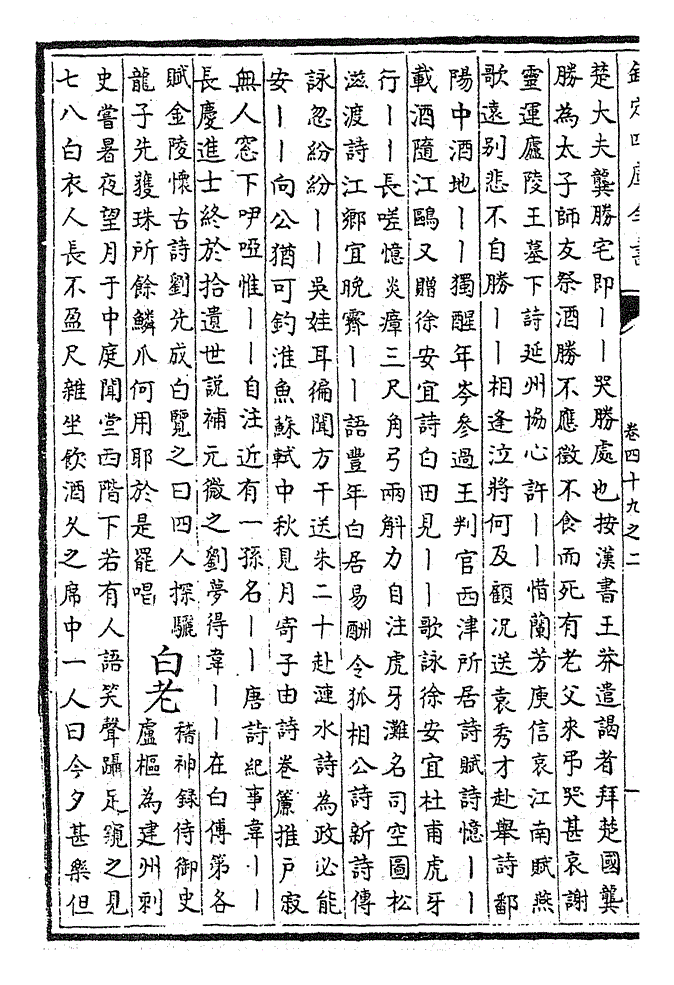 欽定四庫全書
卷四十九之二
楚大夫龔勝宅即丨丨哭勝處也按漢書王莽遣謁者拜楚國龔
勝為太子師友祭酒勝不應徵不食而死有老父來弔哭甚哀謝
靈運廬陵王墓下詩延州協心許丨丨惜蘭芳庾信哀江南賦燕
歌遠别悲不自勝丨丨相逢泣將何及顧况送袁秀才赴舉詩鄱
陽中酒地丨丨獨醒年岑參過王判官西津所居詩賦詩憶丨丨
載酒隨江鷗又贈徐安宜詩白田見丨丨歌詠徐安宜杜甫虎牙
行丨丨長嗟憶炎瘴三尺角弓兩斛力自注虎牙灘名司空圖松
滋渡詩江鄉宜晚霽丨丨語豐年白居易酬令狐相公詩新詩傳
詠忽紛紛丨丨吳娃耳徧聞方干送朱二十赴漣水詩為政必能
安丨丨向公猶可釣淮魚蘇軾中秋見月寄子由詩卷簾推戶寂
無人窓下咿啞惟丨丨自注近有一孫名丨丨唐詩紀事韋丨丨
長慶進士終於拾遺世說補元微之劉夢得韋丨丨在白傅第各
賦金陵懷古詩劉先成白覽之曰四人探驪
龍子先獲珠所餘鱗爪何用耶於是罷唱
白老
稽神録侍御史
盧樞為建州刺
史嘗暑夜望月于中庭聞堂西階下若有人語笑聲躡足窺之見
七八白衣人長不盈尺雜坐飲酒久之席中一人曰今夕甚樂但